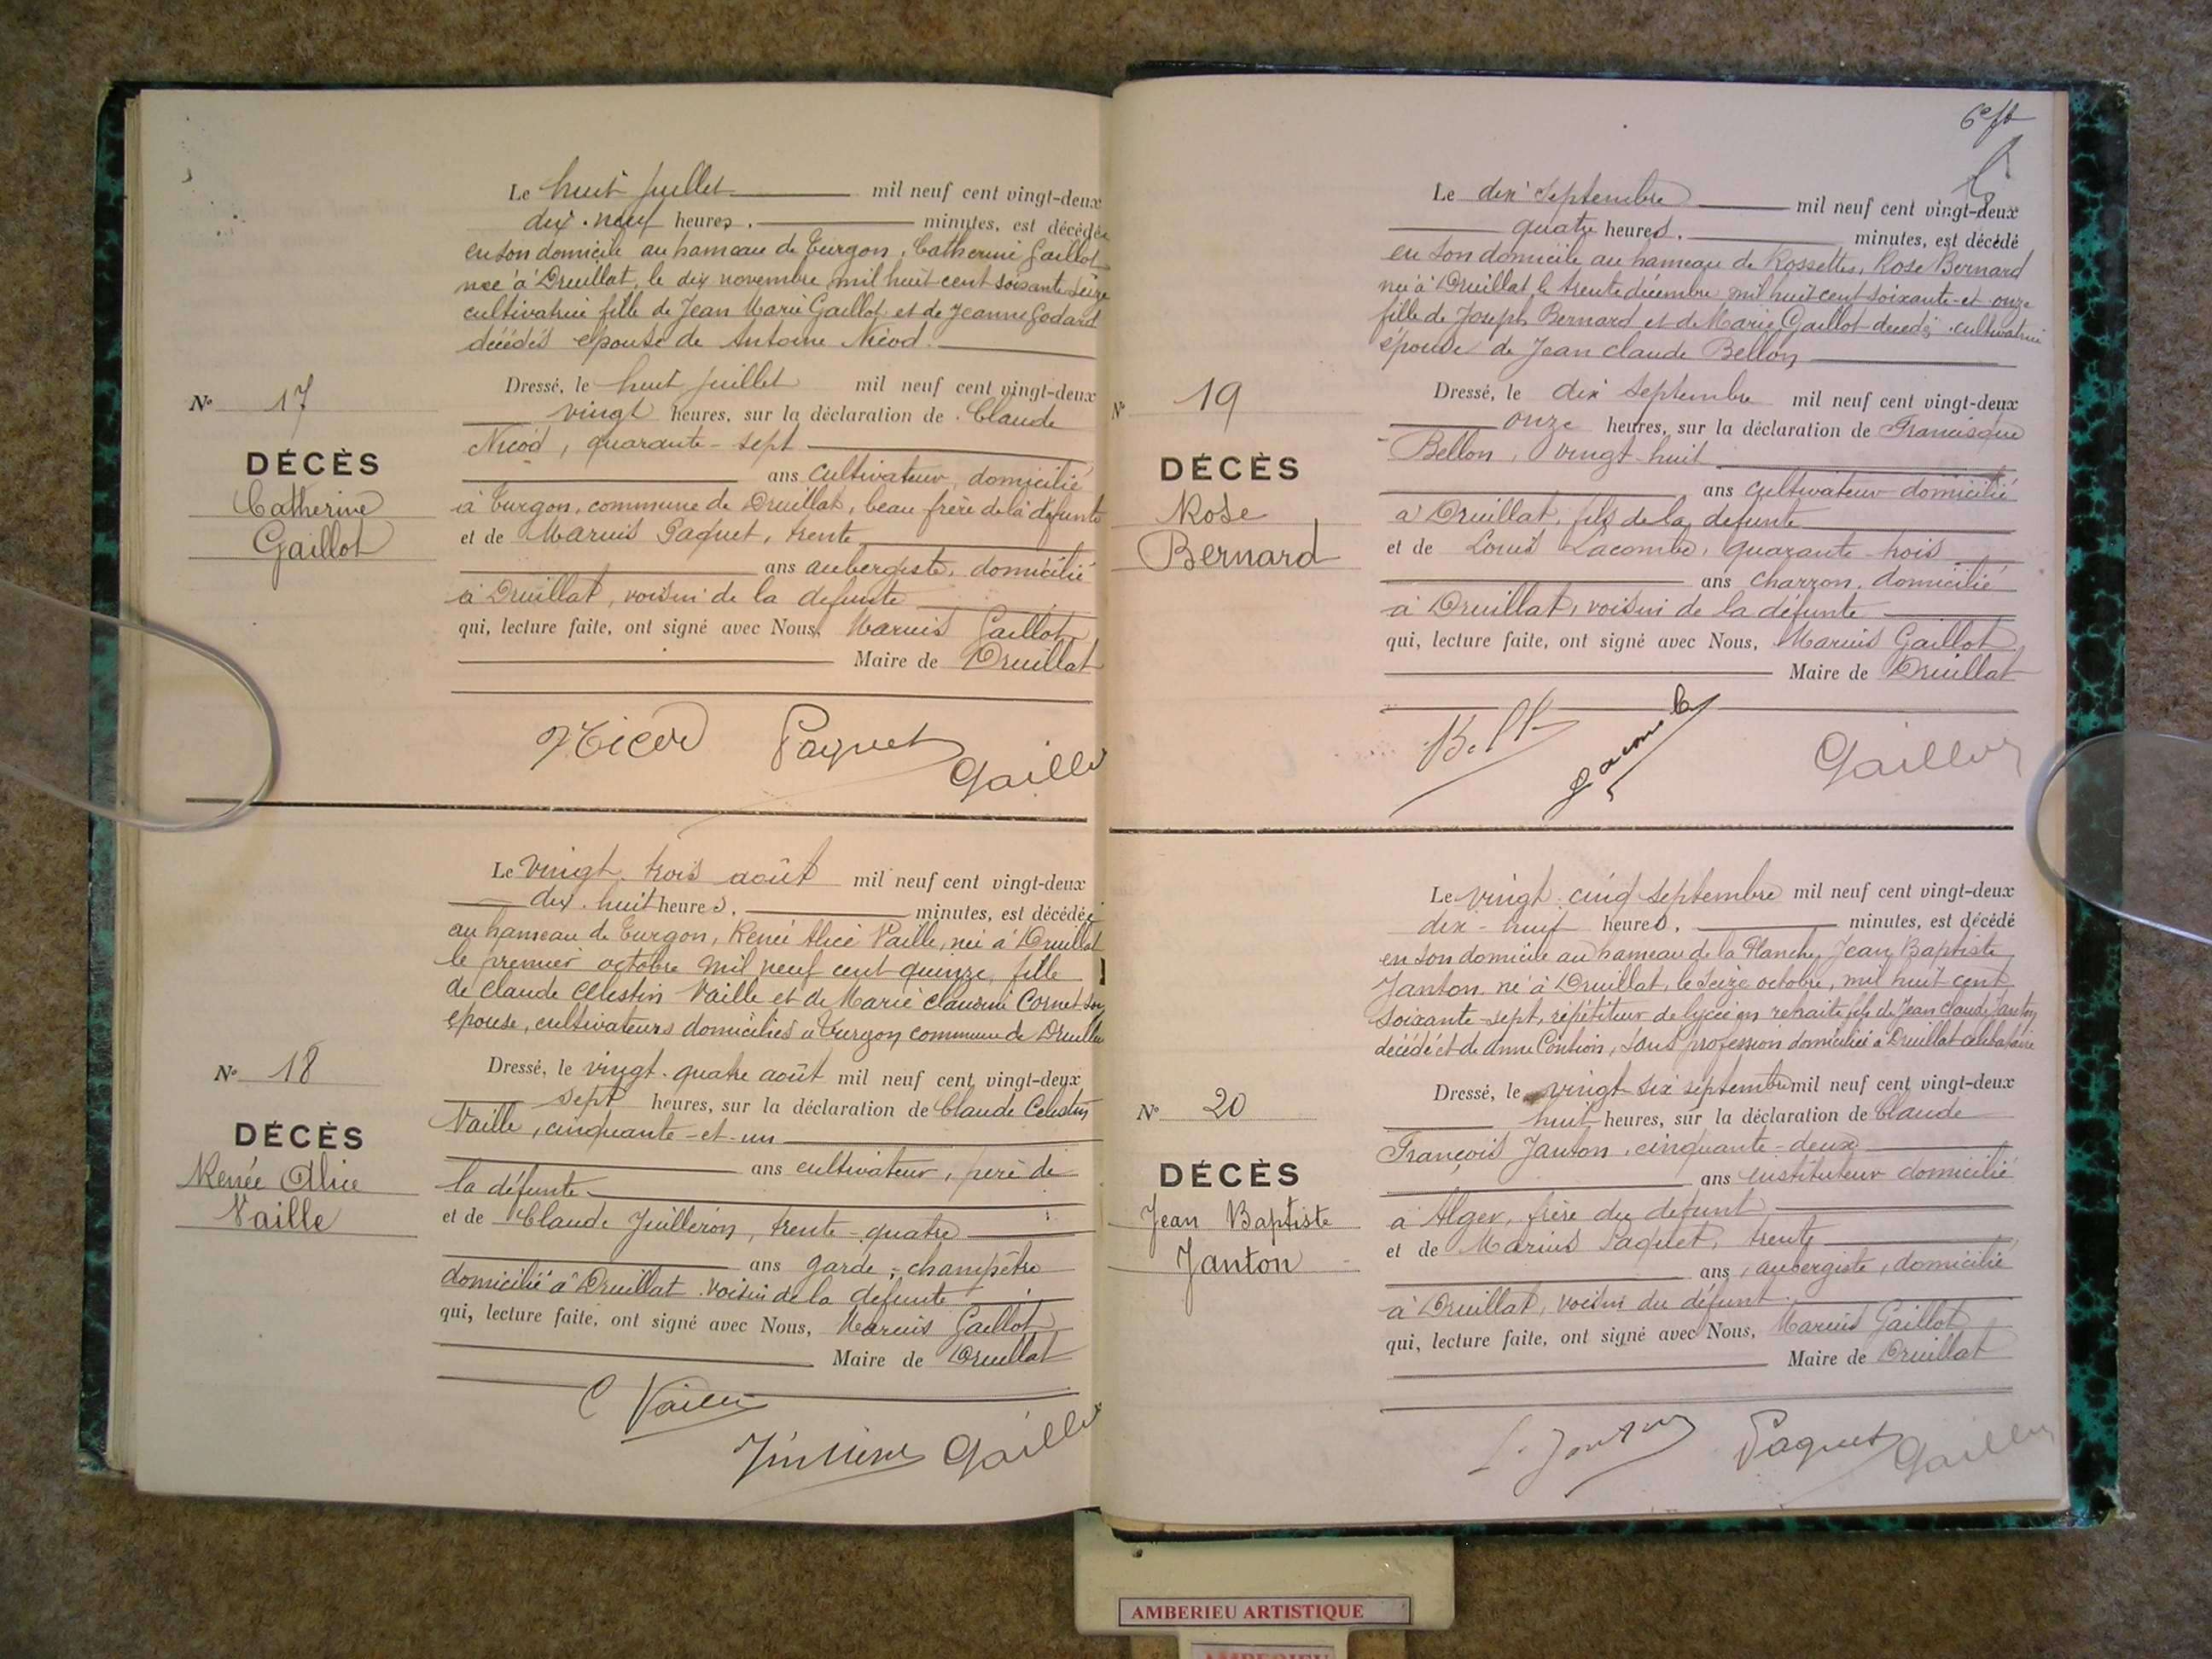 Le huit Juillet mil neuf cent vingt-deux
dix-neuf heures. minutes, est décédée
en son domicile au hameau de Turgon, Catherine Gaillot
née à Druillat, le dix novembre mil huit cent soixante seize
cultivatrice fille de Jean Marie Gaillot et de Jeanne Godard
décédés épouse de Antoine Nicod.
Dressé, le huit Juillet mil neuf cent vingt-deux
vingt heures, sur la déclaration de Claude
Nicod, quarante-sept
ans cultivateur, domicilié
à Turgon, commune de Druillat, beau frère de la défunte
et de Marius Paquet, trente
ans aubergiste, domicilié
à Druillat, voisin de la défunte
qui, lecture faite, ont signé avec Nous, Marius Gaillot
Maire de Druillat
N° 17
DÉCÈS
Catherine
Gaillot
Nicod Paquet Gaillot
Le vingt-trois août mil neuf cent vingt-deux
dix-huit heures. minutes, est décédée
au hameau de Turgon, Renée Alice Vaille, née à Druillat
le premier octobre mil neuf cent quinze, fille
de Claude Célestin Vaille et de Marie Claudine Cornet son
épouse, cultivateurs domiciliés à Turgon commune de Druillat
Dressé, le vingt-quatre août mil neuf cent vingt-deux
sept heures, sur la déclaration de Claude Célestin
Vaille, cinquante-et-un
ans cultivateur, père de
la défunte
et de Claude Juilleron, trente-quatre
ans garde-champêtre
domicilié à Druillat voisin de la défunte
qui, lecture faite, ont signé avec Nous, Marius Gaillot
Maire de Druillat
N° 18
DÉCÈS
Renée Alice
Vaille
C Vaille
Gaillot
Le dix septembre mil neuf cent vingt-deux
quatre heures. minutes, est décédé
en son domicile au hameau de Rossettes, Rose Bernard
née à Druillat le trente décembre mil huit cent soixante-et-onze
fille de Joseph Bernard et de Marie Gaillot décédés, cultivatrice
épouse de Jean Claude Bellon
Dressé, le dix septembre mil neuf cent vingt-deux
onze heures, sur la déclaration de Francisque
Bellon, vingt-huit
ans cultivateur domicilié
à Druillat, fils de la défunte
et de Louis Lacombe, quarante-trois
ans charron, domicilié
à Druillat, voisin de la défunte
qui, lecture faite, ont signé avec Nous, Marius Gaillot
Maire de Druillat
N° 19
DÉCÈS
Rose
Bernard
Gaillot
Le vingt-cinq septembre mil neuf cent vingt-deux
dix-huit heures. minutes, est décédé
en son domicile au hameau de la Planche, Jean Baptiste
Janton né à Druillat, le seize octobre, mil huit cent
soixante-sept, répétiteur de lycée en retraite fils de Jean Claude Janton
décédé et de Anne Contion, sans profession domiciliée à Druillat célibataire
Dressé, le vingt-six septembre mil neuf cent vingt-deux
huit heures, sur la déclaration de Claude
François Janton, cinquante-deux
ans instituteur domicilié
à Alger, frère du défunt
et de Marius Paquet, trente
ans, aubergiste, domicilié
à Druillat, voisin du défunt.
qui, lecture faite, ont signé avec Nous, Marius Gaillot
Maire de Druillat
N° 20
DÉCÈS
Jean Baptiste
Janton
Paquet Gaillot
AMBERIEU ARTISTIQUE
AMBERIEU